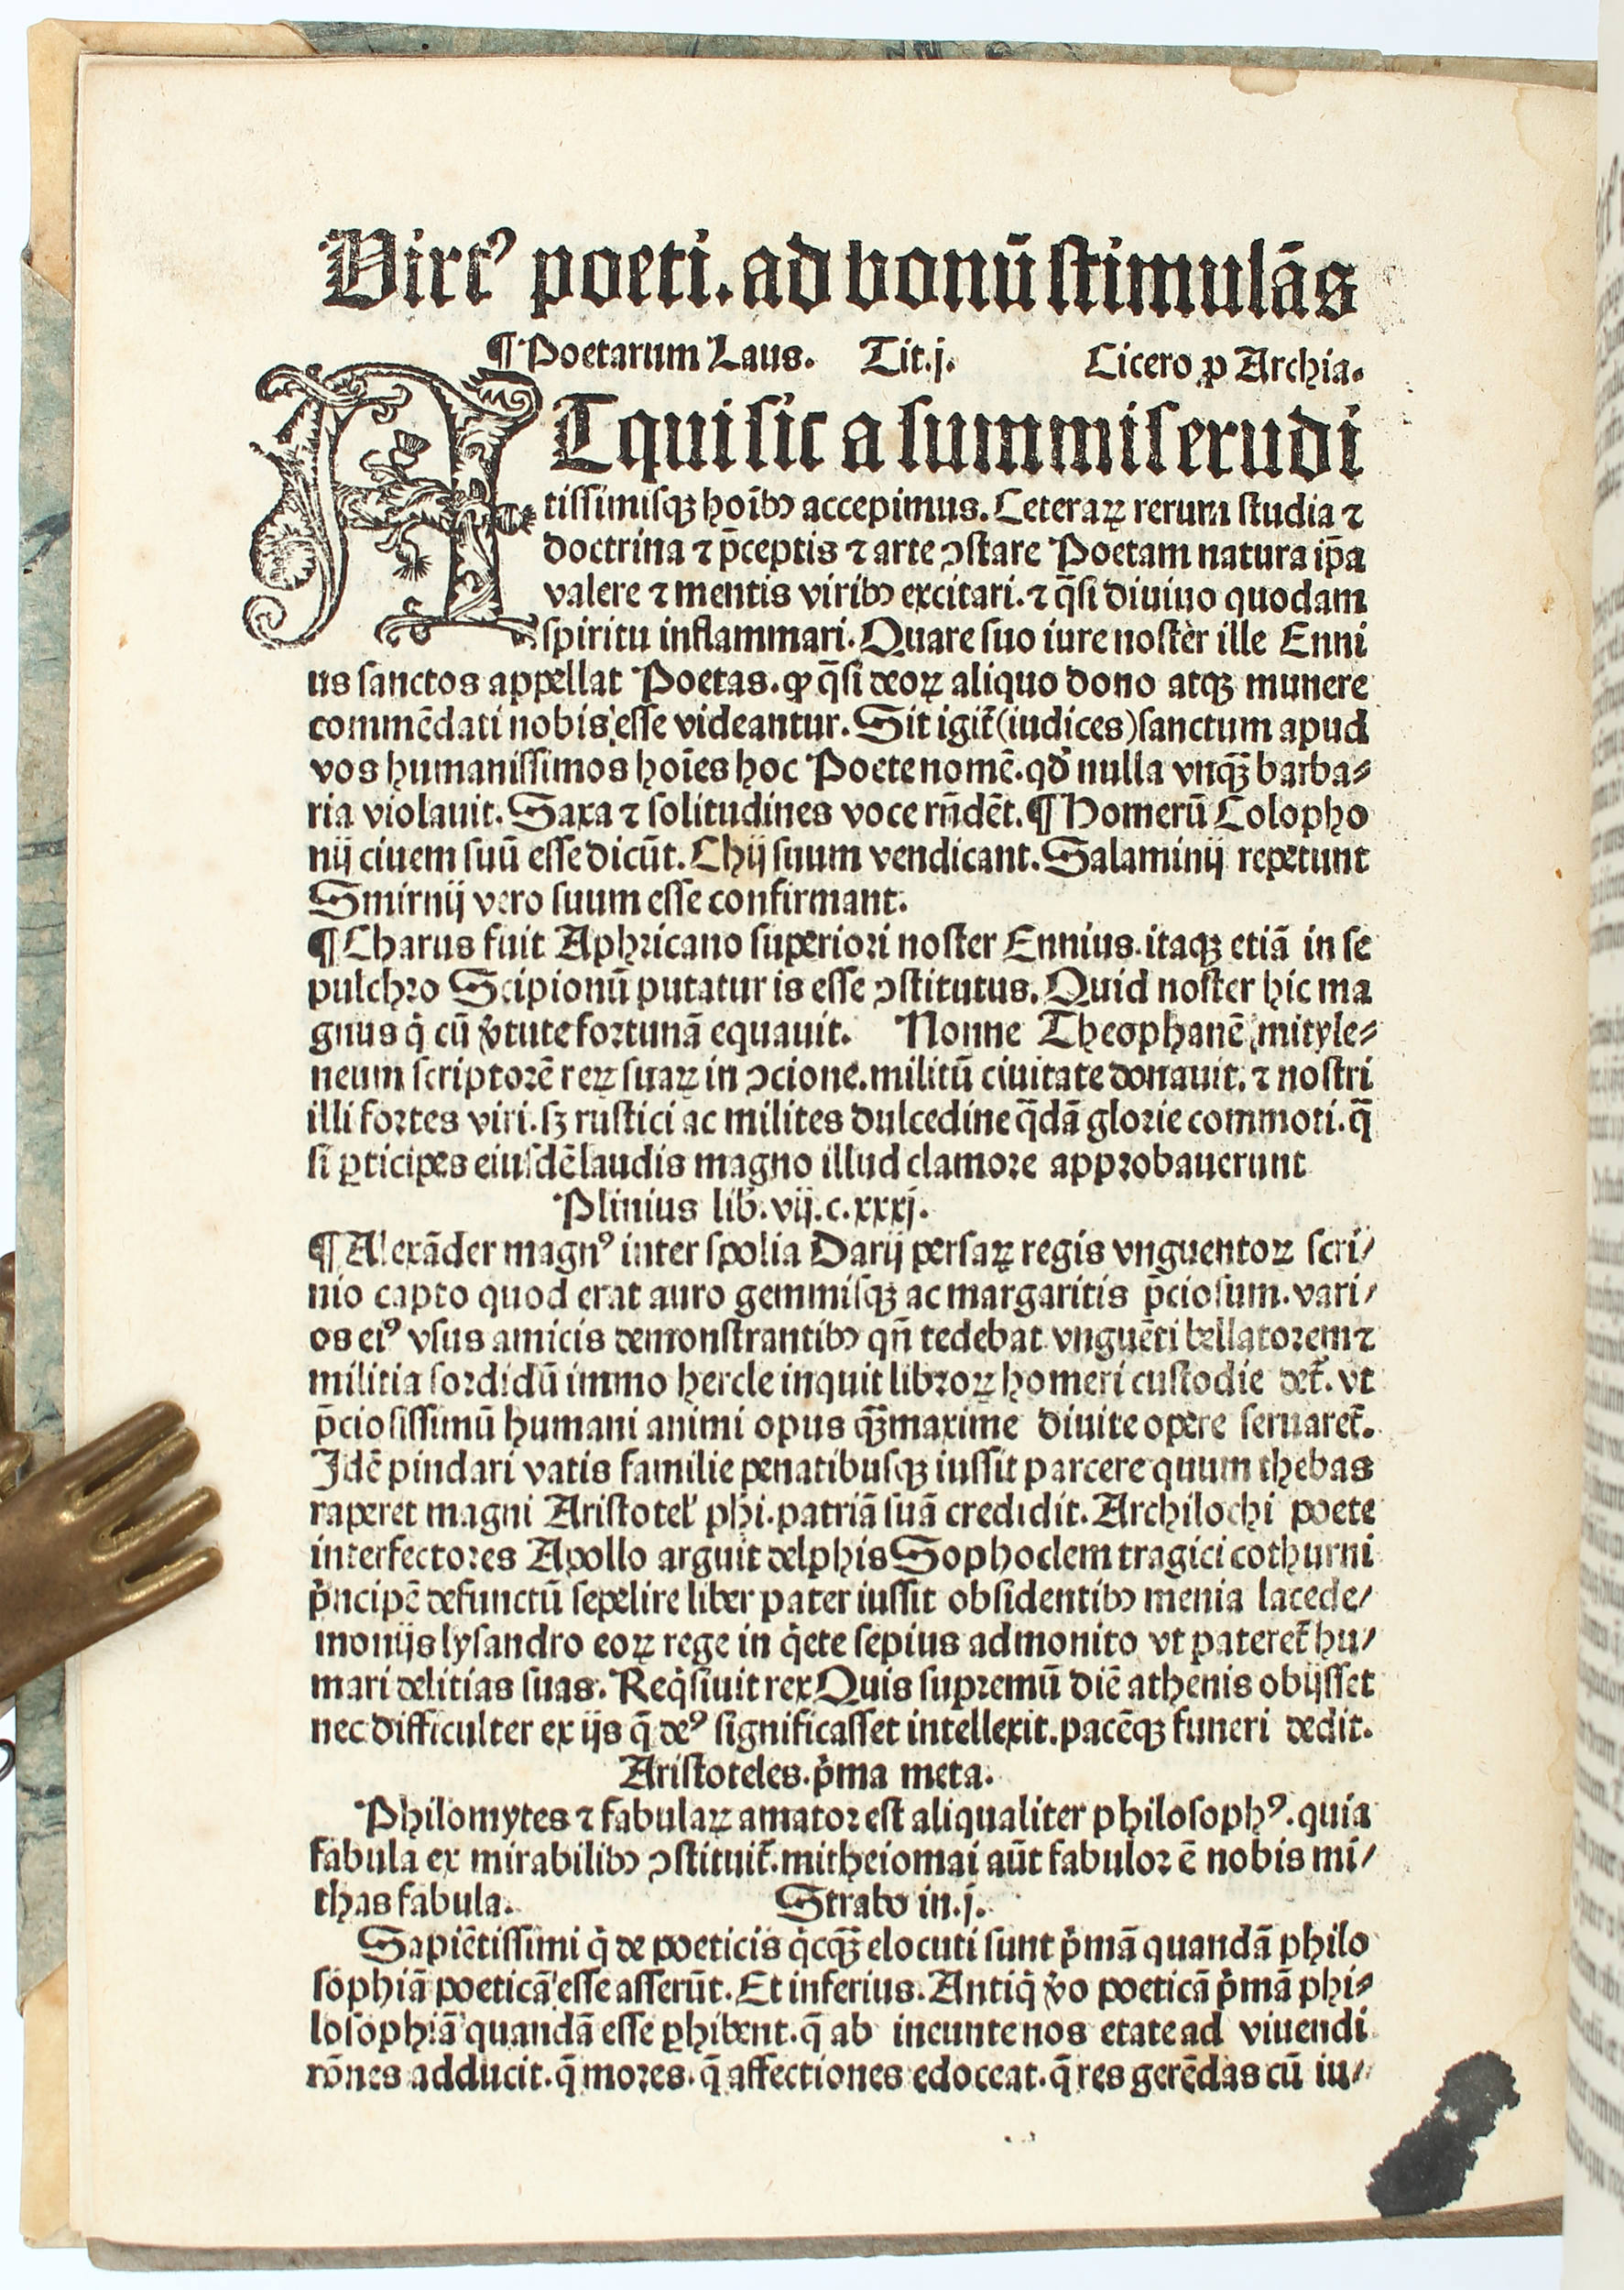 Virtꝰ poeti. ad bonū stimulās
¶ Poetarum Laus. Tit. j. Cicero ꝓ Archia.
ATqui sic a summis erudi
tissimisqꝫ hoībꝰ accepimus. Ceteraꝝ rerum studia ⁊
doctrina ⁊ p̄ceptis ⁊ arte ꝯstare Poetam natura ip̄a
valere ⁊ mentis viribꝰ excitari. ⁊ q̄si diuiuo quodam
spiritu inflammari. Quare suo iure noster ille Enni
us sanctos appellat Poetas. ꝙ q̄si deoꝝ aliquo dono atqꝫ munere
commēdati nobis esse videantur. Sit igit̄ (iudices) sanctum apud
vos humanissimos hoīes hoc Poete nomē. qd̓ nulla vnqꝫ̄ barba⸗
ria violauit. Saxa ⁊ solitudines voce rn̄dēt. ¶ Homerū Colopho
nij ciuem suū esse dicūt. Chij suum vendicant. Salaminij repetunt
Smirnij vero suum esse confirmant.
¶ Charus fuit Aphricano superiori noster Ennius. itaqꝫ etiā in se
pulchro Scipionū putatur is esse ꝯstitutus. Quid noster hic ma
gnus q̇ cū v̓tute fortunā equauit. Nonne Theophanē mityle⸗
neum scriptorē reꝝ suaꝝ in ꝯcione. militū ciuitate donauit. ⁊ nostri
illi fortes viri. sꝫ rustici ac milites dulcedine q̄dā glorie commoti. q̄
si ꝑticipes eiusdē laudis magno illud clamore approbauerunt
Plinius lib. vij. c. xxxj.
¶ Alexāder magnꝰ inter spolia Darij persaꝝ regis vnguentoꝝ scri/
nio capto quod erat auro gemmisqꝫ ac margaritis p̄ciosum. vari/
os eiꝰ vsus amicis demonstrantibꝰ qn̄ tedebat vnguēti bellatorem ⁊
militia sordidū immo hercle inquit libroꝝ homeri custodie det̄. vt
p̄ciosissimū humani animi opus qꝫ̄ maxime diuite opere seruaret̄.
Idē pindari vatis familie penatibusqꝫ iussit parcere quum thebas
raperet magni Aristotel̓ phi. patriā suā credidit. Archilochi poete
interfectores Apollo arguit delphis Sophoclem tragici cothurni
p̓ncipē defunctū sepelire liber pater iussit obsidentibꝰ menia lacede/
monijs lysandro eoꝝ rege in q̇ete sepius admonito vt pateret̄ hu/
mari delitias suas. Req̇siuit rex Quis supremū diē athenis obijsset
nec difficulter ex ijs q̄ deꝰ significasset intellexit. pacēqꝫ funeri dedit.
Aristoteles. p̓ma meta.
Philomytes ⁊ fabulaꝝ amator est aliqualiter philosophꝰ. quia
fabula ex mirabilibꝰ ꝯstituit̄. mitheiomai aūt fabulor ē nobis mi/
thas fabula. Strabo in. j.
Sapiētissimi q̇ de poeticis q̇cqꝫ̄ elocuti sunt p̓mā quandā philo
sophiā poeticā esse asserūt. Et inferius. Antiq̇ v̓o poeticā p̓mā phi⸗
losophiā quandā esse ꝑhibent. q̄ ab ineunte nos etate ad viuendi
rōnes adducit. q̄ mores. q̄ affectiones edoceat. q̄ res gerēdas cū iu/